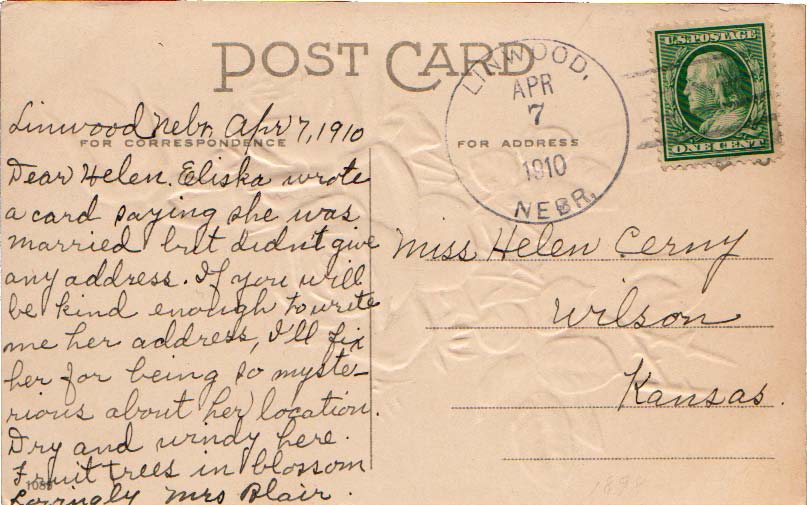 POST CARD
LINWOOD,
APR
7
1910
NEBR.
U.S. POSTAGE
ONE CENT
FOR CORRESPONDENCE
FOR ADDRESS
Linwood Nebr. Apr 7, 1910
Dear Helen. Eliska wrote
a card saying she was
married but didn't give
any address. If you will
be kind enough to write
me her address, I'll fix
her for being so myste-
rious about her location.
Dry and windy here.
Fruit trees in blossom
Lovingly Mrs Blair.
Miss Helen Cerny
Wilson
Kansas.